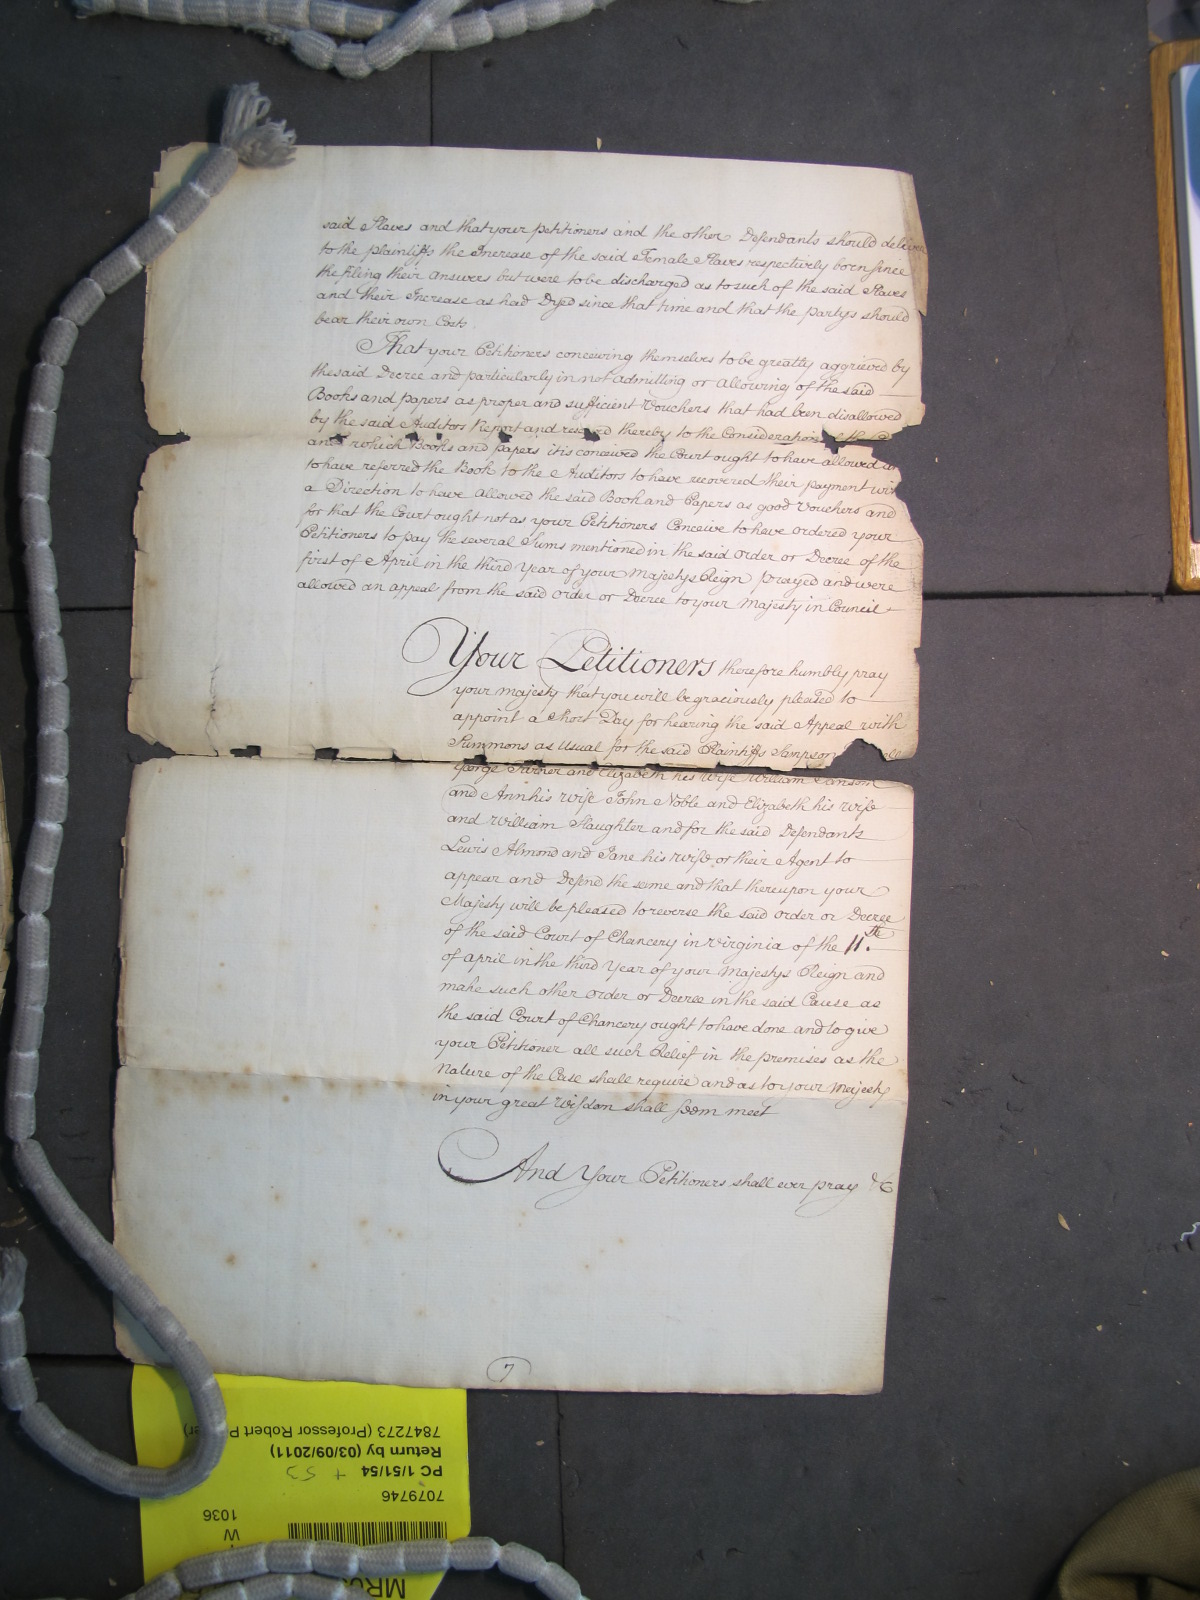 said Slaves and that your petitioners and the other Defendants should deliver
to the plaintiffs the Increase of the said Female Slaves respectively born since
the filing their answers but were to be discharged as to such of the said Slaves
and their Increase as had Dyed since that time and that the partys should
bear their own Costs
That your Petitioners conceiving themselves to be greatly aggrieved by
the said Decree and particularly in not admitting or allowing of the said
Books and papers as proper and sufficient Vouchers that had been disallowed
by the said Auditors Report and thereby to the Consideration of the
and which Books and papers it is conceived the Court ought to have allowed
to have referred the Book to the Auditors to have recovered their payment
a Direction to have allowed the said Book and Papers as good Vouchers and
for that the Court ought not as your Petitioners Conceive to have ordered your
Petitioners to pay the several Sums mentioned in the said order or Decree of the
first of April in the third Year of your Majestys Reign prayed and were
allowed an appeal from the said order or Decree to your Majesty in Council
Your Petitioners therefore humbly pray
your majesty that you will be graciously pleased to
appoint a Short Day for hearing the said Appeal with
Summons as Usual for the said Plaintiffs Sampson
George Turner and Elizabeth his wife William
and Ann his wife John Noble and Elizabeth his wife
and William Slaughter and for the said Defendants
Lewis Almond and Jane his wife or their Agent to
appear and Defend the same and that thereupon your
Majesty will be pleased to reverse the said order or Decree
of the said Court of Chancery in Virginia of the 11.th
of april in the third Year of your Majestys Reign and
make such other order or Decree in the said Cause as
the said Court of Chancery ought to have done and to give
your Petitioner all such Relief in the premises as the
Nature of the Case shall require and as to your Majesty
in your great Wisdom shall seem meet
And Your Petitioners shall ever pray &c
7
7847273 (Professor Robert P
Return by (03/09/2011)
PC 1/51/54 + 53
7079746
1036
W